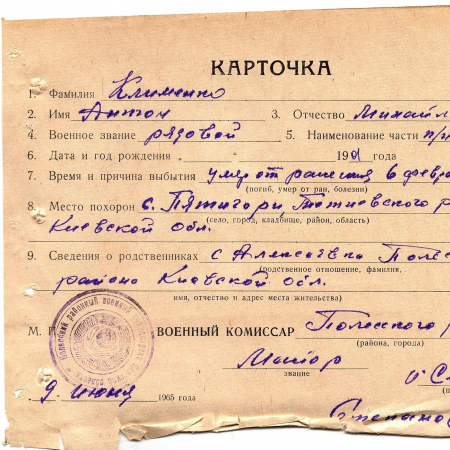 КАРТОЧКА
1. Фамилия Клименко
2. Имя Антон 3. Отчество Михайл
4. Военное звание рядовой 5. Наименование части п/п
6. Дата и год рождения „ " 19 года
7. Время и причина выбытия умер от ранения 6 февра
(погиб, умер от ран, болезни)
8. Место похорон с. Пятигори, Тетиевского р
Киевской обл.
(село, город, кладбище, район, область)
9. Сведения о родственниках с Алексеевка Полес
(родственное отношение, фамилия,
района Киевской обл.
имя, отчество и адрес места жительства)
М. П. ВОЕННЫЙ КОМИССАР Полесского р
(района, города)
Майор
звание
9. июня 1965 года
Степанов